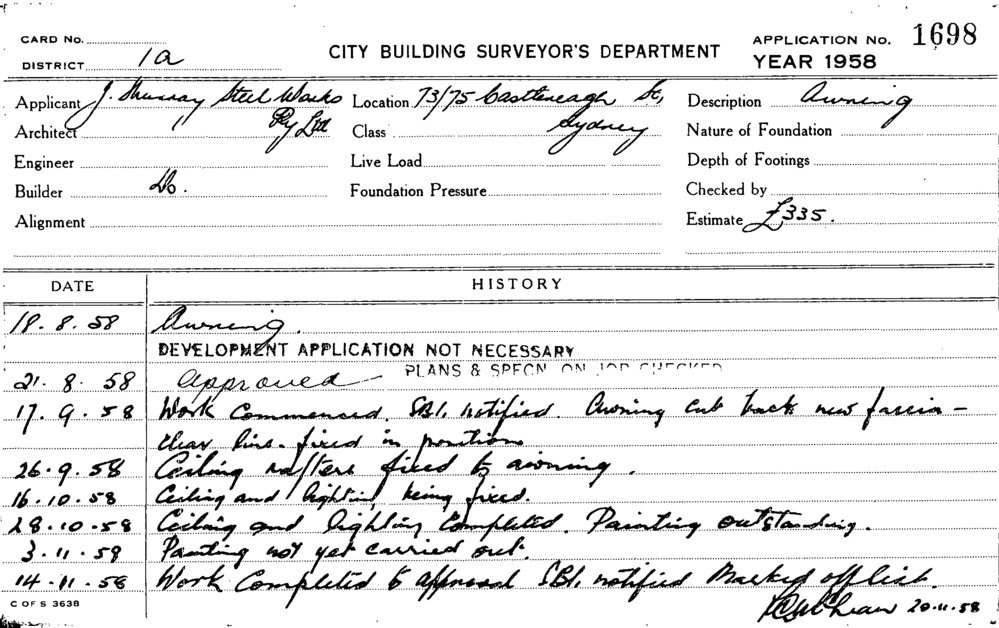 CARD No.
DISTRICT 1a
CITY BUILDING SURVEYOR'S DEPARTMENT
APPLICATION No. 1698
YEAR 1958
Applicant J. Murray Steel Works Pty Ltd
Location 73/75 Castlereagh St, Sydney
Description Awning
Architect
Class
Nature of Foundation
Engineer
Live Load
Depth of Footings
Builder Do.
Foundation Pressure
Checked by
Alignment
Estimate £335.
DATE HISTORY
18.8.58 Awning.
DEVELOPMENT APPLICATION NOT NECESSARY
PLANS & SPECN ON JOB CHECKED
21.8.58 Approved
17.9.58 Work Commenced. SBI. notified. Awning cut back new fascia –
line. fixed in position
26.9.58 Ceiling rafters fixed to awning.
16.10.58 Ceiling and lighting being fixed.
28.10.58 Ceiling and lighting Completed. Painting outstanding.
3.11.58 Painting not yet carried out.
14.11.58 Work Completed to approval SBI. notified Marked off list.
20.11.58
C OF S 3638